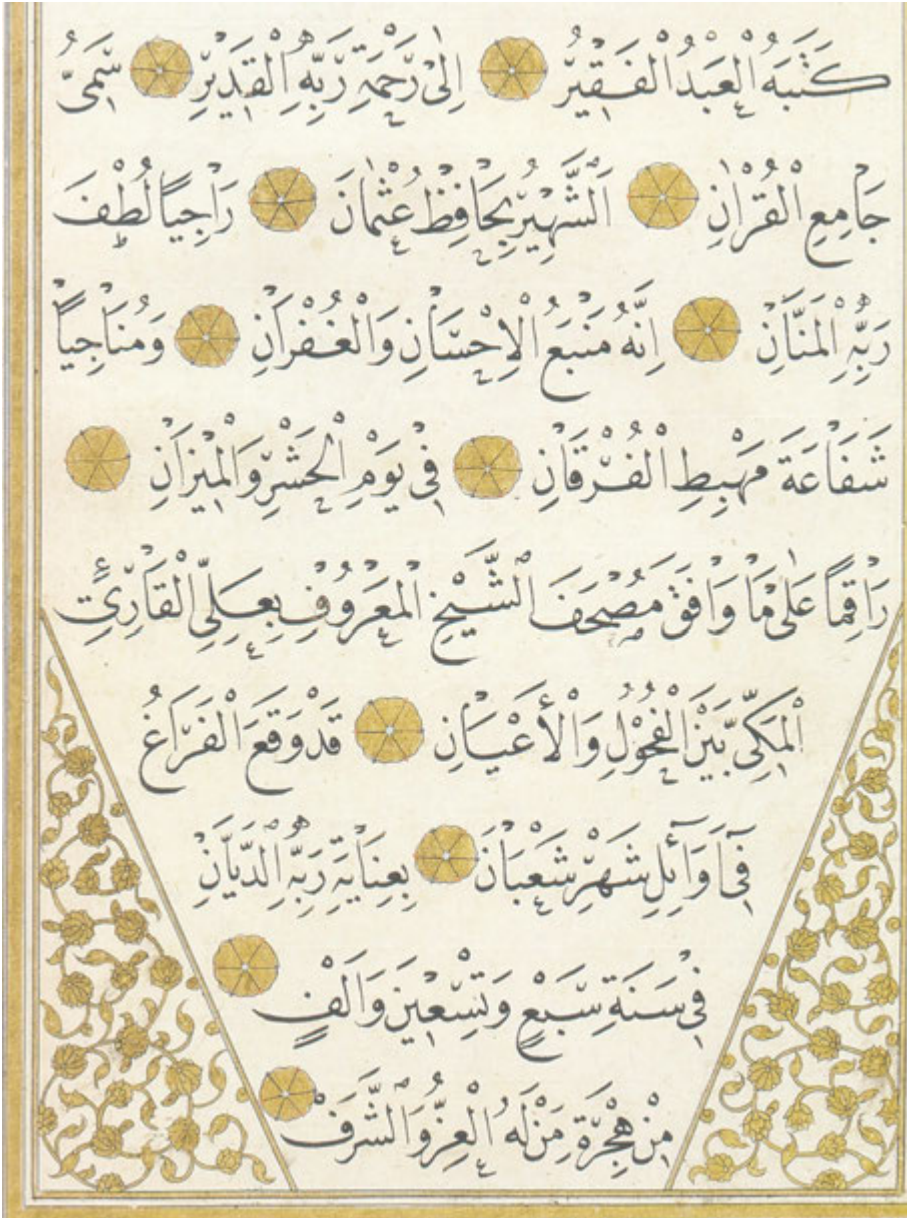 كَتَبَهُ الْعَبْدُ الْفَقِيرُ اِلٰى رَحْمَةِ رَبِّهِ الْقَدِيرِ سَمِىُّ
جَامِعِ الْقُرْاٰنِ اَلشَّهِيرُ بِحَافِظْ عُثْمَانَ رَاجِيًا لُطْفَ
رَبِّهِ الْمَنَّانِ اِنَّهُ مَنْبَعُ الْاِحْسَانِ وَالْغُفْرَانِ وَمُنَاجِيًا
شَفَاعَةَ مَهْبِطِ الْفُرْقَانِ فِى يَوْمِ الْحَشْرِ وَالْمِيزَانِ
رَاقِمًا عَلٰى مَا وَافَقَ مُصْحَفَ الشَّيْخِ الْمَعْرُوفِ بِعَلِىِّ الْقَارِئِ
الْمَكِّىِّ بَيْنَ الْفُحُولِ وَالْأَعْيَانِ قَدْ وَقَعَ الْفَرَاغُ
فِى اَوَائِلِ شَهْرِ شَعْبَانَ بِعِنَايَةِ رَبِّهِ الدَّيَّانِ
فِى سَنَةِ سَبْعٍ وَتِسْعِينَ وَاَلْفٍ
مِنْ هِجْرَةِ مَنْ لَهُ الْعِزُّ وَالشَّرَفْ